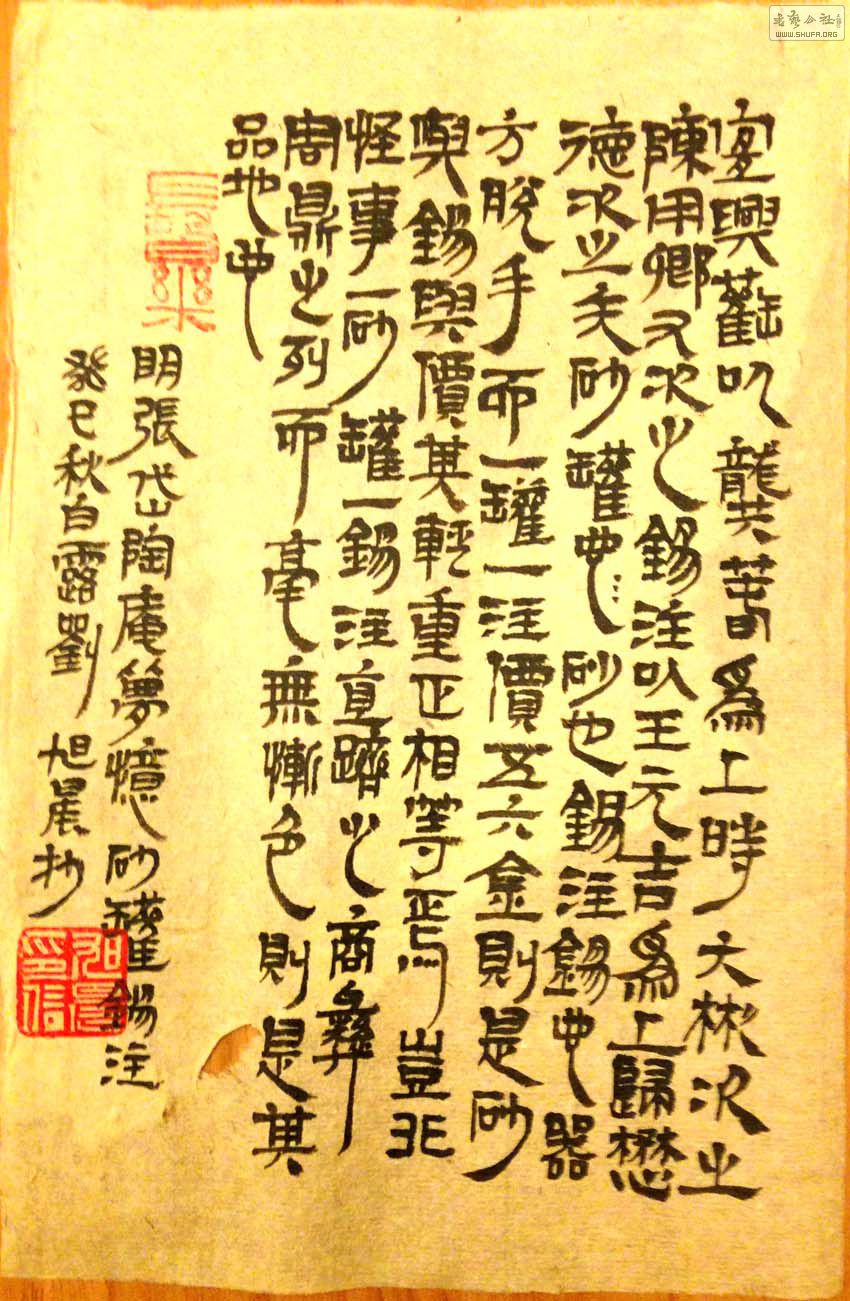 書藝公社
WWW.SHUFA.ORG
宜興罐以龔春爲上時大彬次之
陳用卿又次之錫注以王元吉爲上歸懋
德次之夫砂罐也砂也錫注錫也器
方脫手而一罐一注價五六金則是砂
與錫與價其輕重正相等焉豈非
怪事一砂罐一錫注直躋之商彝
周鼎之列而毫無慚色則是其
品地也
明張岱陶庵夢憶砂罐錫注
癸巳秋白露劉旭晨抄
旭晨印信